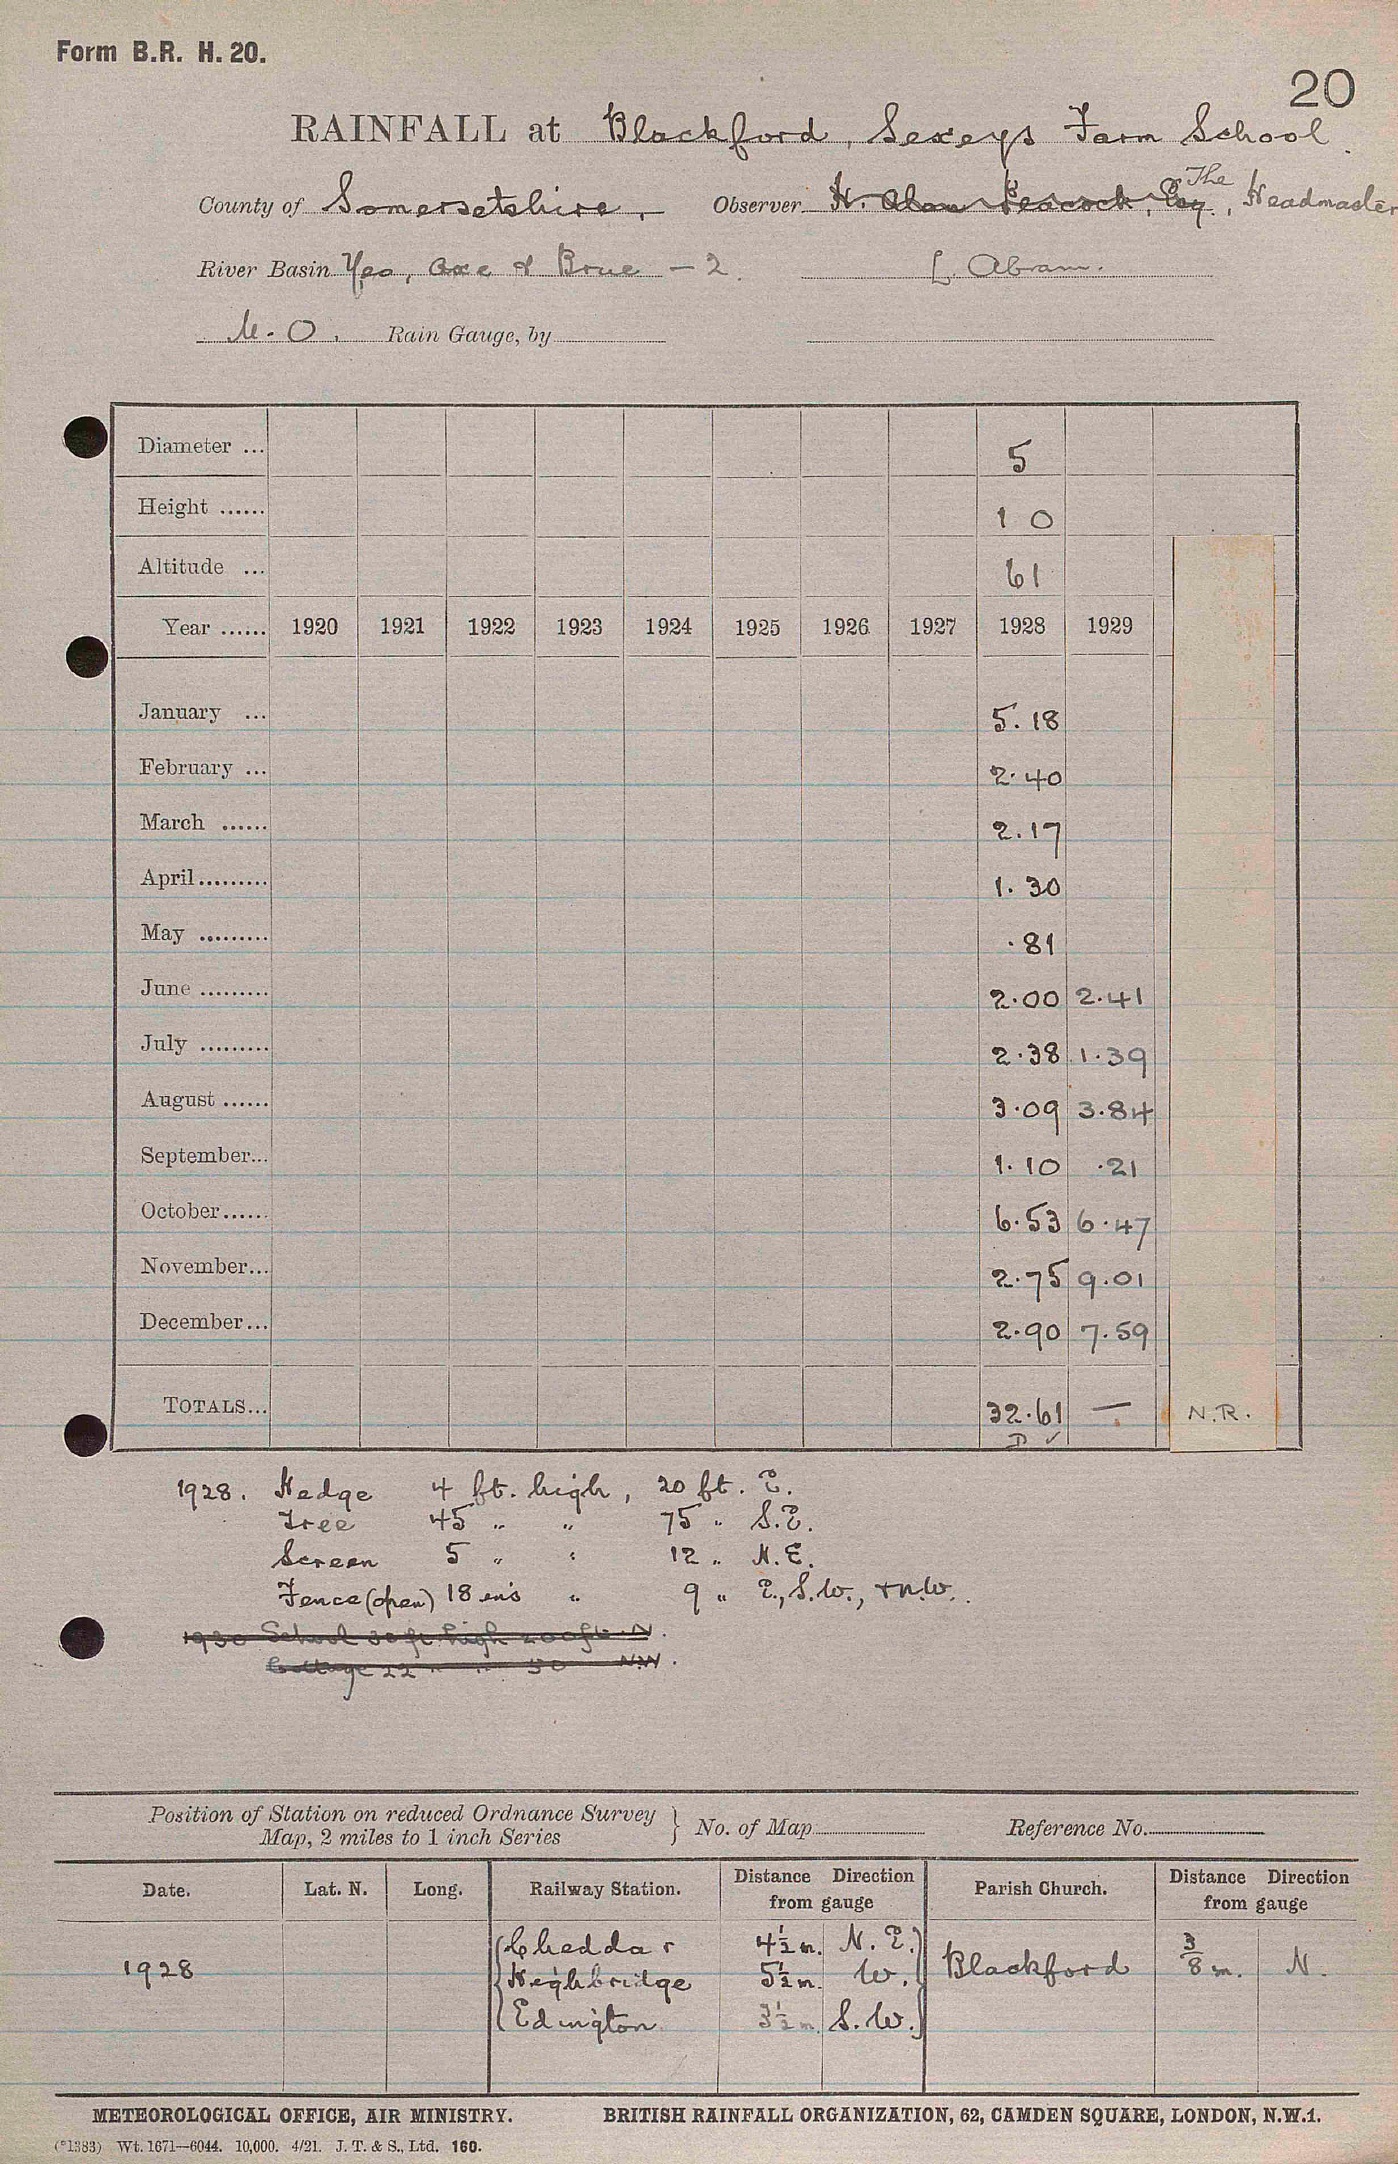 Form B.R. H. 20.
20
RAINFALL at Blackford, Sexeys Farm School.
County of Somersetshire. Observer H. Alan Peacock, Esq., The Headmaster
River Basin Yeo, Axe & Brue – 2. L. Abram.
M.O. Rain Gauge, by
Diameter ... 5
Height ...... 1 0
Altitude ... 61
Year ...... 1920 1921 1922 1923 1924 1925 1926 1927 1928 1929
January ... 5.18
February ... 2.40
March ...... 2.17
April......... 1.30
May ......... .81
June ......... 2.00 2.41
July ......... 2.38 1.39
August ...... 3.09 3.84
September... 1.10 .21
October...... 6.53 6.47
November... 2.75 9.01
December... 2.90 7.59
TOTALS... 32.61 — N.R.
D ✓
1928. Hedge 4 ft. high, 20 ft. E.
Tree 45 " " 75 " S.E.
Screen 5 " " 12 " N.E.
Fence (open) 18 ins " 9 " E., S.W., + N.W.
1930 School 30 ft high 200 ft N.
Cottage 22 " " 50 N.W.
Position of Station on reduced Ordnance Survey Map, 2 miles to 1 inch Series } No. of Map Reference No.
Date. Lat. N. Long. Railway Station. Distance Direction from gauge Parish Church. Distance Direction from gauge
1928 Cheddar 4½ m. N.E. Blackford 3/8 m. N.
Highbridge 5½ m. W.
Edington 3½ m. S.W.
METEOROLOGICAL OFFICE, AIR MINISTRY. BRITISH RAINFALL ORGANIZATION, 62, CAMDEN SQUARE, LONDON, N.W.1.
(*1383) Wt. 1671—6044. 10,000. 4/21. J. T. & S., Ltd. 160.